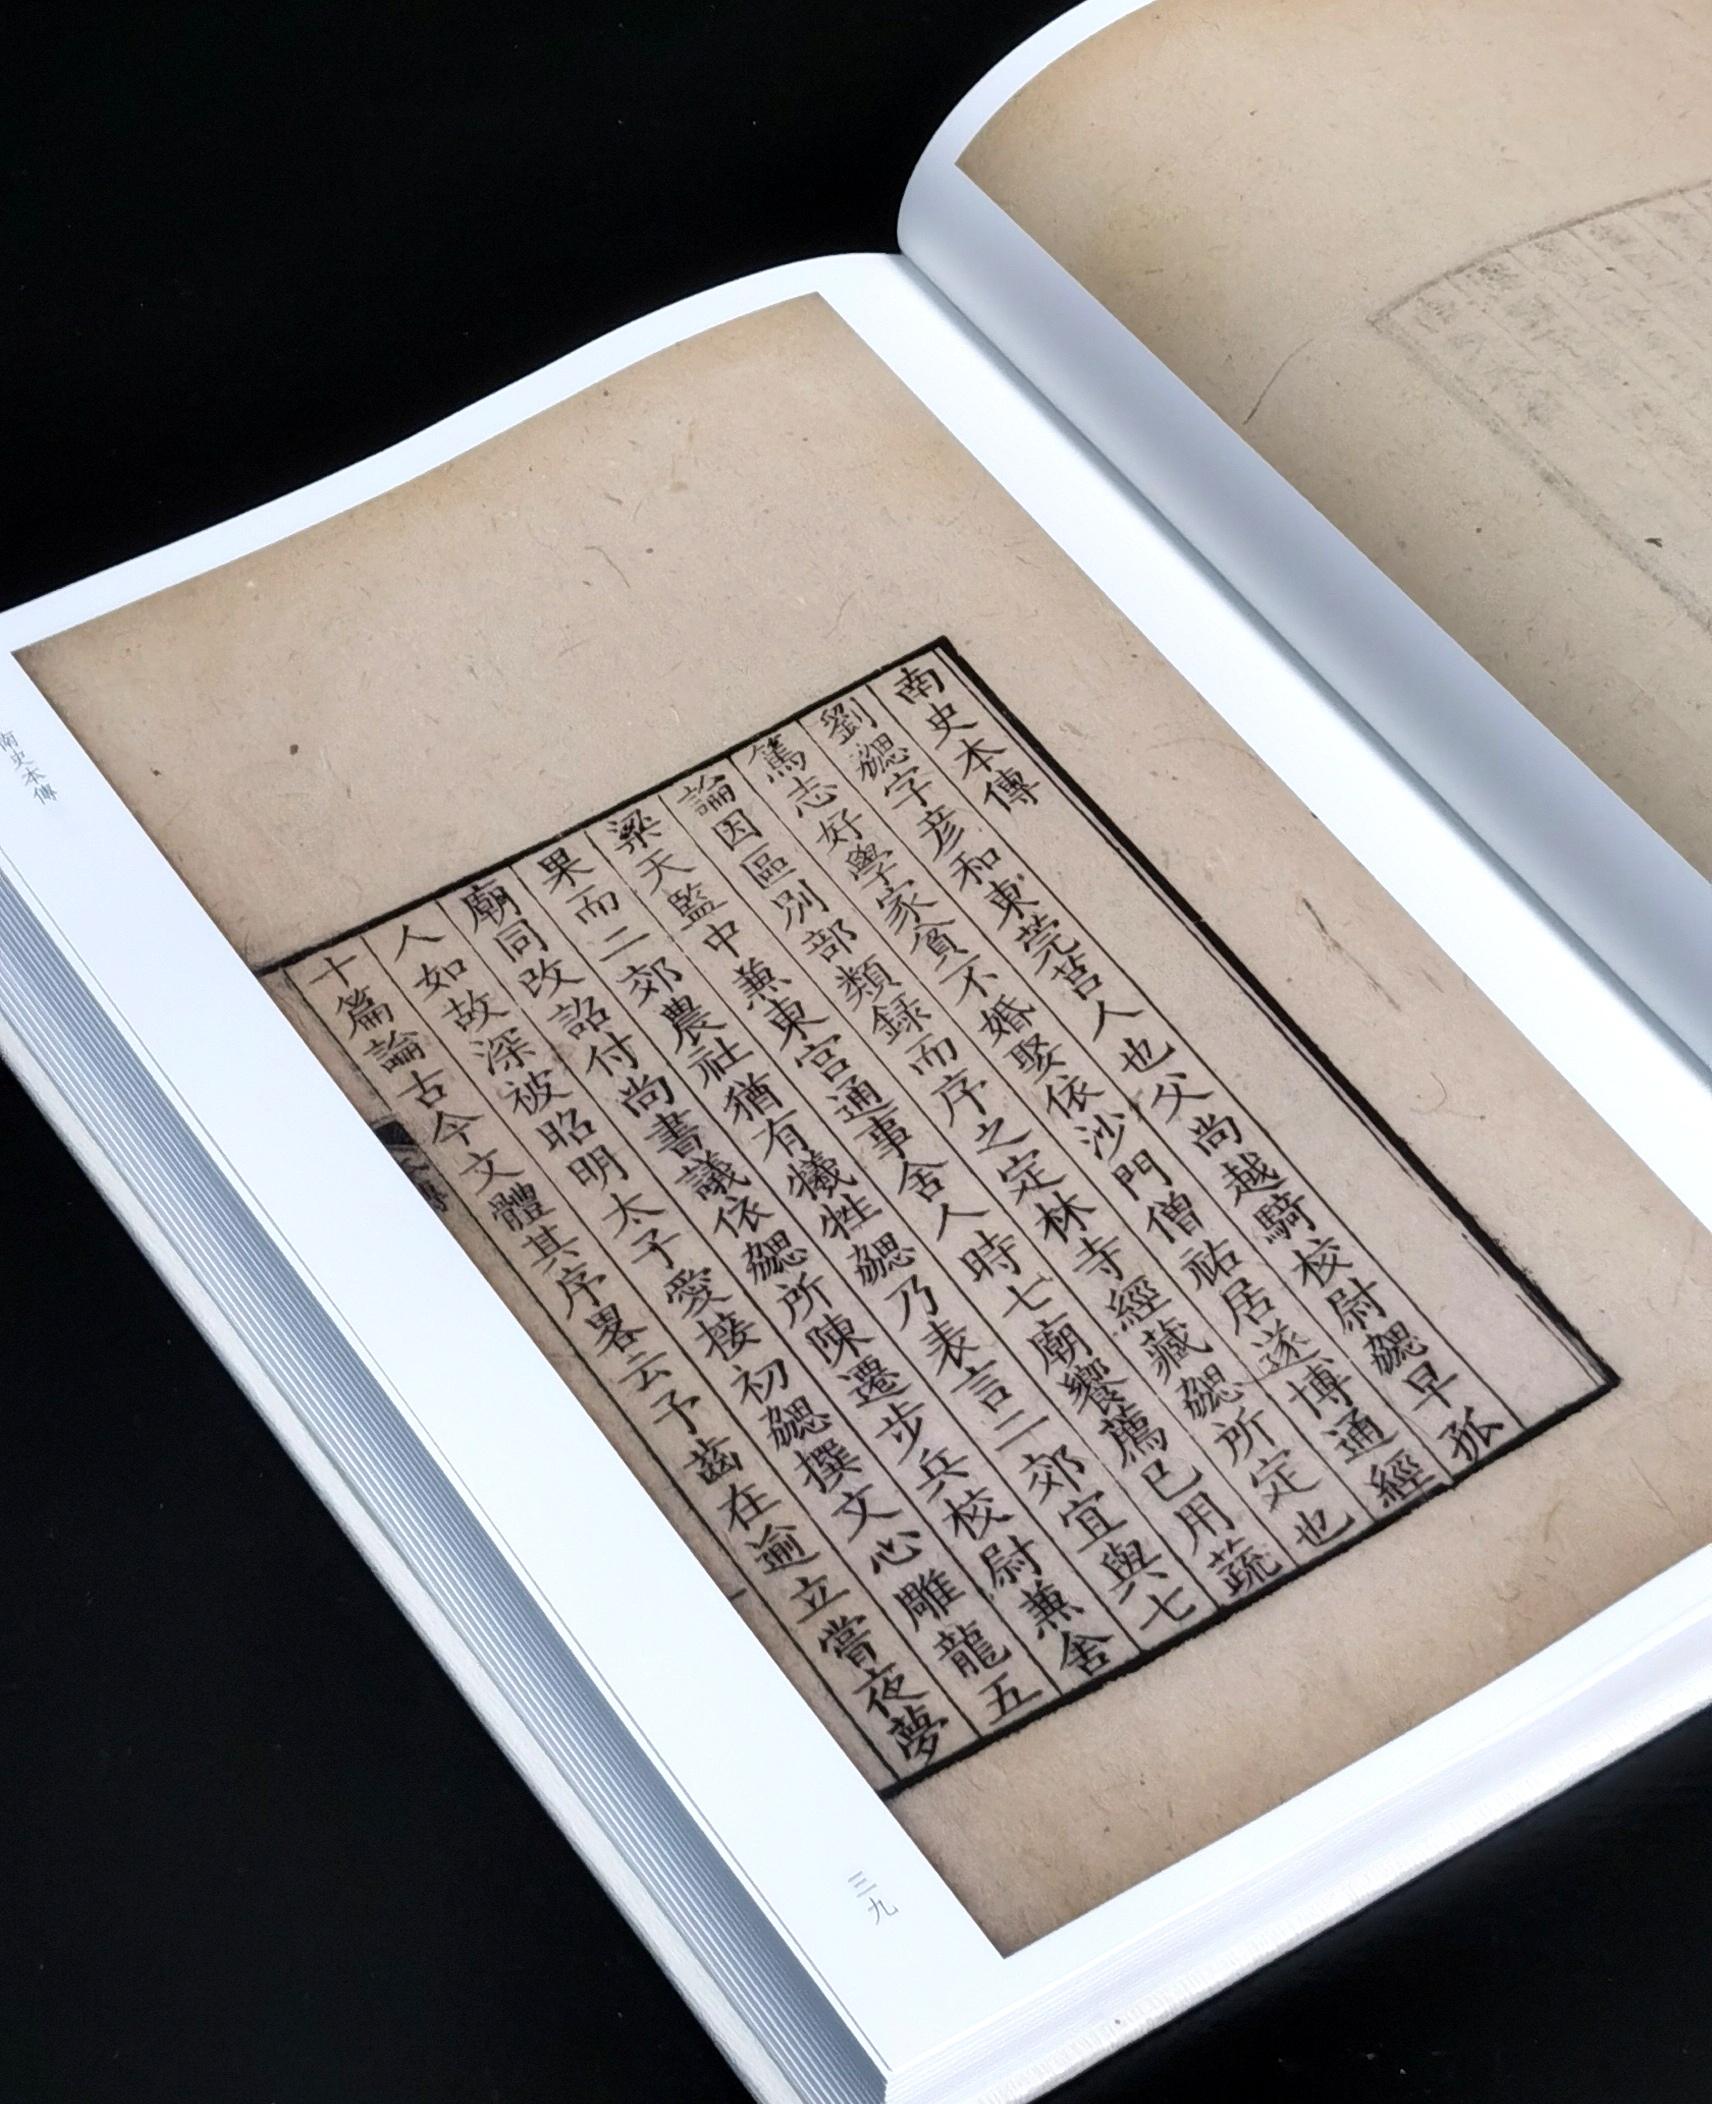 南史本傳
劉勰字彦和東莞莒人也父尚越騎校尉勰早孤
篤志好學家貧不婚娶依沙門僧祐居遂博通經
論因區別部類録而序之定林寺經藏勰所定也
梁天監中兼東宮通事舍人時七廟饗薦已用蔬
果而二郊農社猶有犧牲勰乃表言二郊宜與七
廟同改詔付尚書議依勰所陳遷步兵校尉兼舍
人如故深被昭明太子愛接初勰撰文心雕龍五
十篇論古今文體其序畧云予齒在逾立嘗夜夢
南史本傳
三九